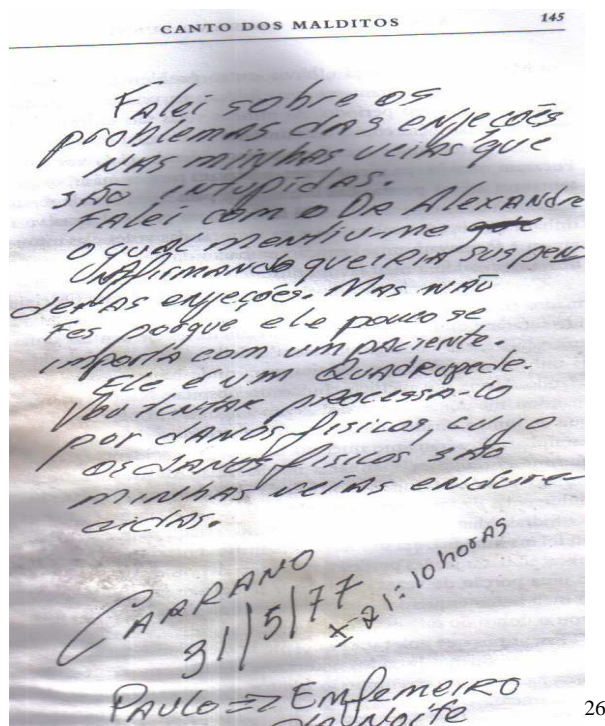 CANTO DOS MALDITOS
145
Falei sobre os
problemas das enjeções
nas minhas veias que
são intupidas.
Falei com o Dr Alexandre
o qual mentiu-me que
afirmando queiria suspen
der as enjeções. Mas não
fes porque ele pouco se
importa com um paciente.
Ele é um Quadrupede.
Vou tentar processa-lo
por danos fisicos, cujo
os danos fisicos são
minhas veias endure-
cidas.
CARRANO
31/5/77
21:10 horas
Paulo => Emfemeiro
da Noite
26